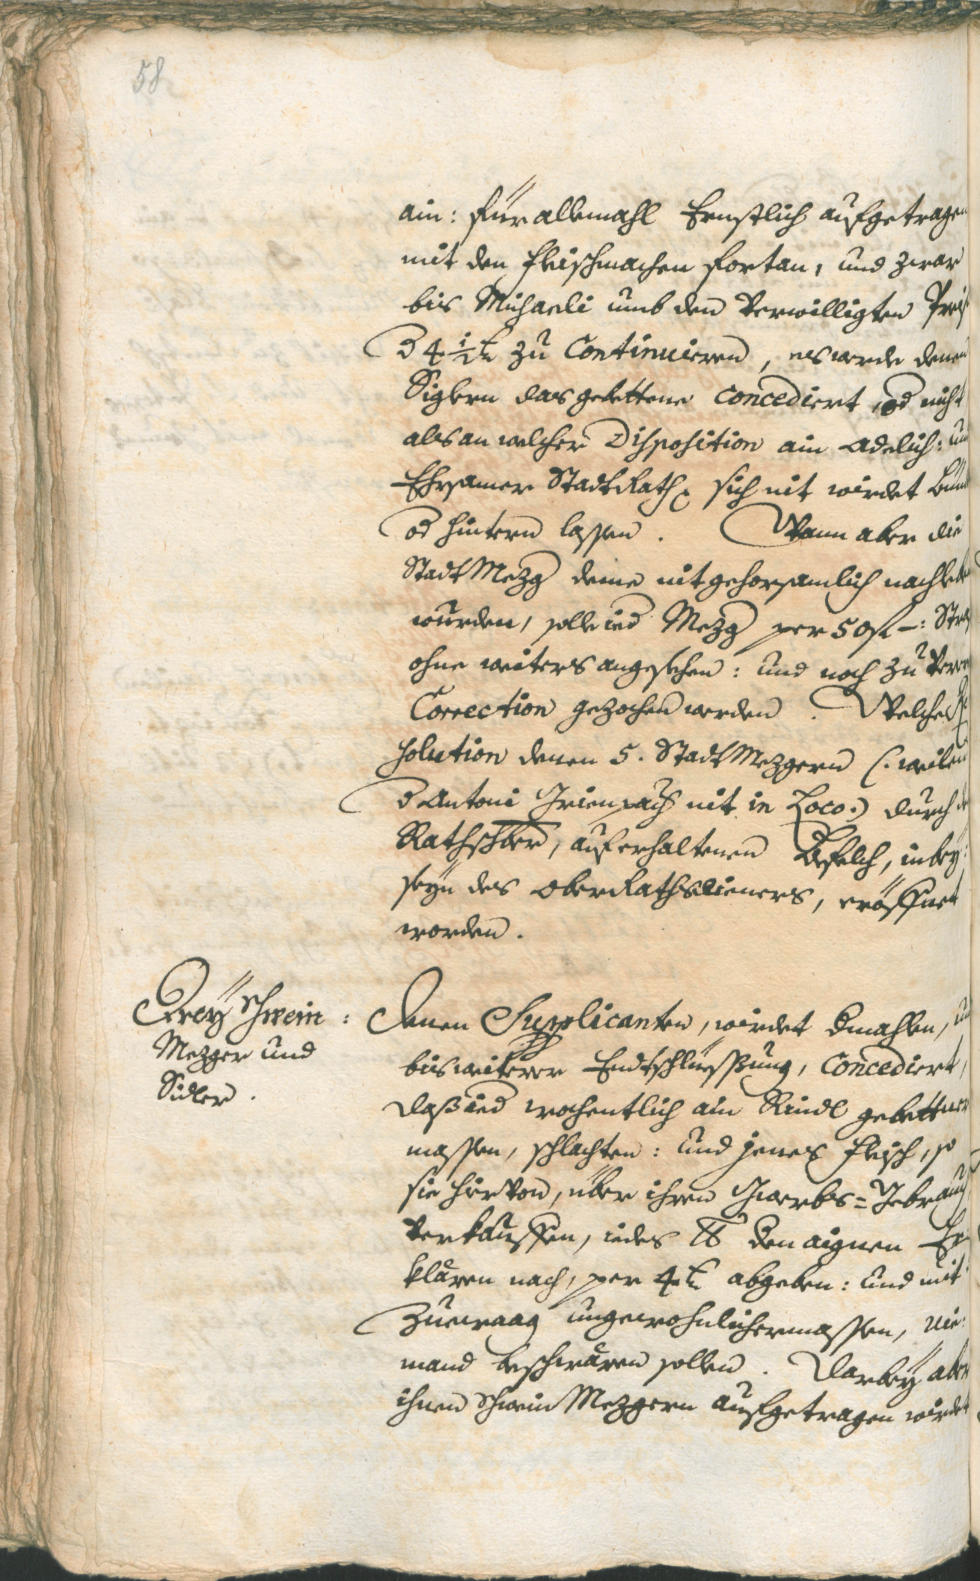 58
ain: für allemahl Ernstlich aufgetragen
mit den fleischmachen fortan, und zwar
bis Michaeli umb den verwilligten Preiß
d 4 1/2 x zu Continuieren, es werde denen
Siglern das gebettene concediert, od nicht
als an welcher Disposition ain Adelich: und
Ehrsamer StadtRath, sich nit wirdet
od hintern lassen. Wann aber die
StadtMezg deme nit gehorsamlich nachleben
wurden, solle ied Mezg per 50 fl -: Straff
ohne weiters angesehen: und noch zu
Correction gezochen werden. Welche Re
solution denen 5. StadtMezgern (: weilen
d Antoni Grienpach nit in Loco:) durch den
Rathschber, auf erhaltenen Befelch, in bey:
seyn des OberRathsdieners, eröffnet
worden.
Drey Schwein:
Mezger und
Sidler.
Denen Supplicanten, wirdet dmahlen, und
bis weiterer Endtschlüessung, Concediert,
daß ied wochentlich ain Rindl gebettner
massen, schlachten: und jenes fleisch, so
sie hirvon, über ihren Gwerbs=Gebrauch
verkauffen, iedes lb den aignen Er
klären nach, per 4 x abgeben: und mit
Zuewaag ungewohnlichermassen, nie:
mand beschwären sollen. Darbey aber
ihnen Schwein Mezgern aufgetragen wirdet